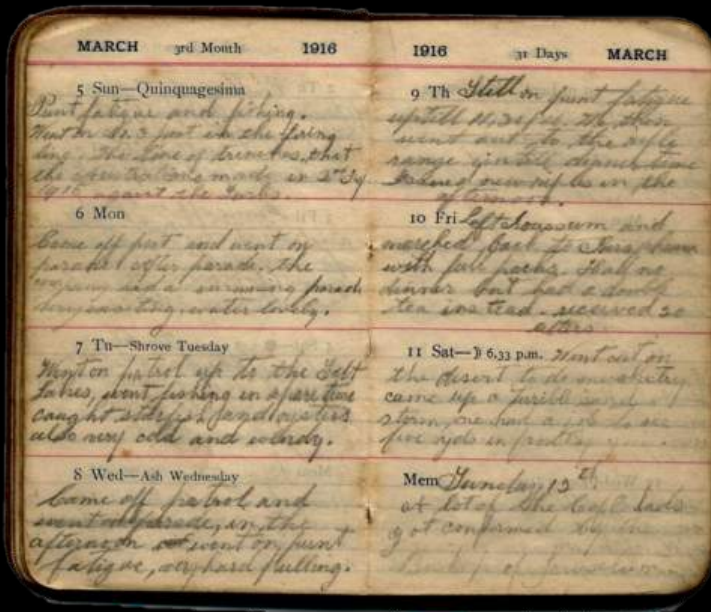 MARCH 3rd Month 1916
5 Sun—Quinquagesima
Punt fatigue and fishing.
Went on No. 3 post in the firing
line. The line of trenches that
the made in
1915 against the Turks.
6 Mon
Came off post and went on
parade after parade. the
company had a swimming parade
very exciting, water lovely.
7 Tu—Shrove Tuesday
Went on patrol up to the Salt
Lakes, went fishing in spare time
caught starfish and oysters
also very cold and windy.
8 Wed—Ash Wednesday
Came off patrol and
went on parade, in the
afternoon went on punt
fatigue, very hard pulling.
1916 31 Days MARCH
9 Th Still on punt fatigue
up till We then
went out to the rifle
range until dinner time
Issued new rifles in the
afternoon.
10 Fri Left and
marched back to
with full packs. Had no
dinner but had a double
tea instead. received 20
11 Sat—☽ 6.33 p.m. Went out on
the desert to do musketry
came up a terrible sand
storm, one had a job to see
five yds in front
Mem Sunday 12th
a lot of the lads
got confirmed by the
Bishop of